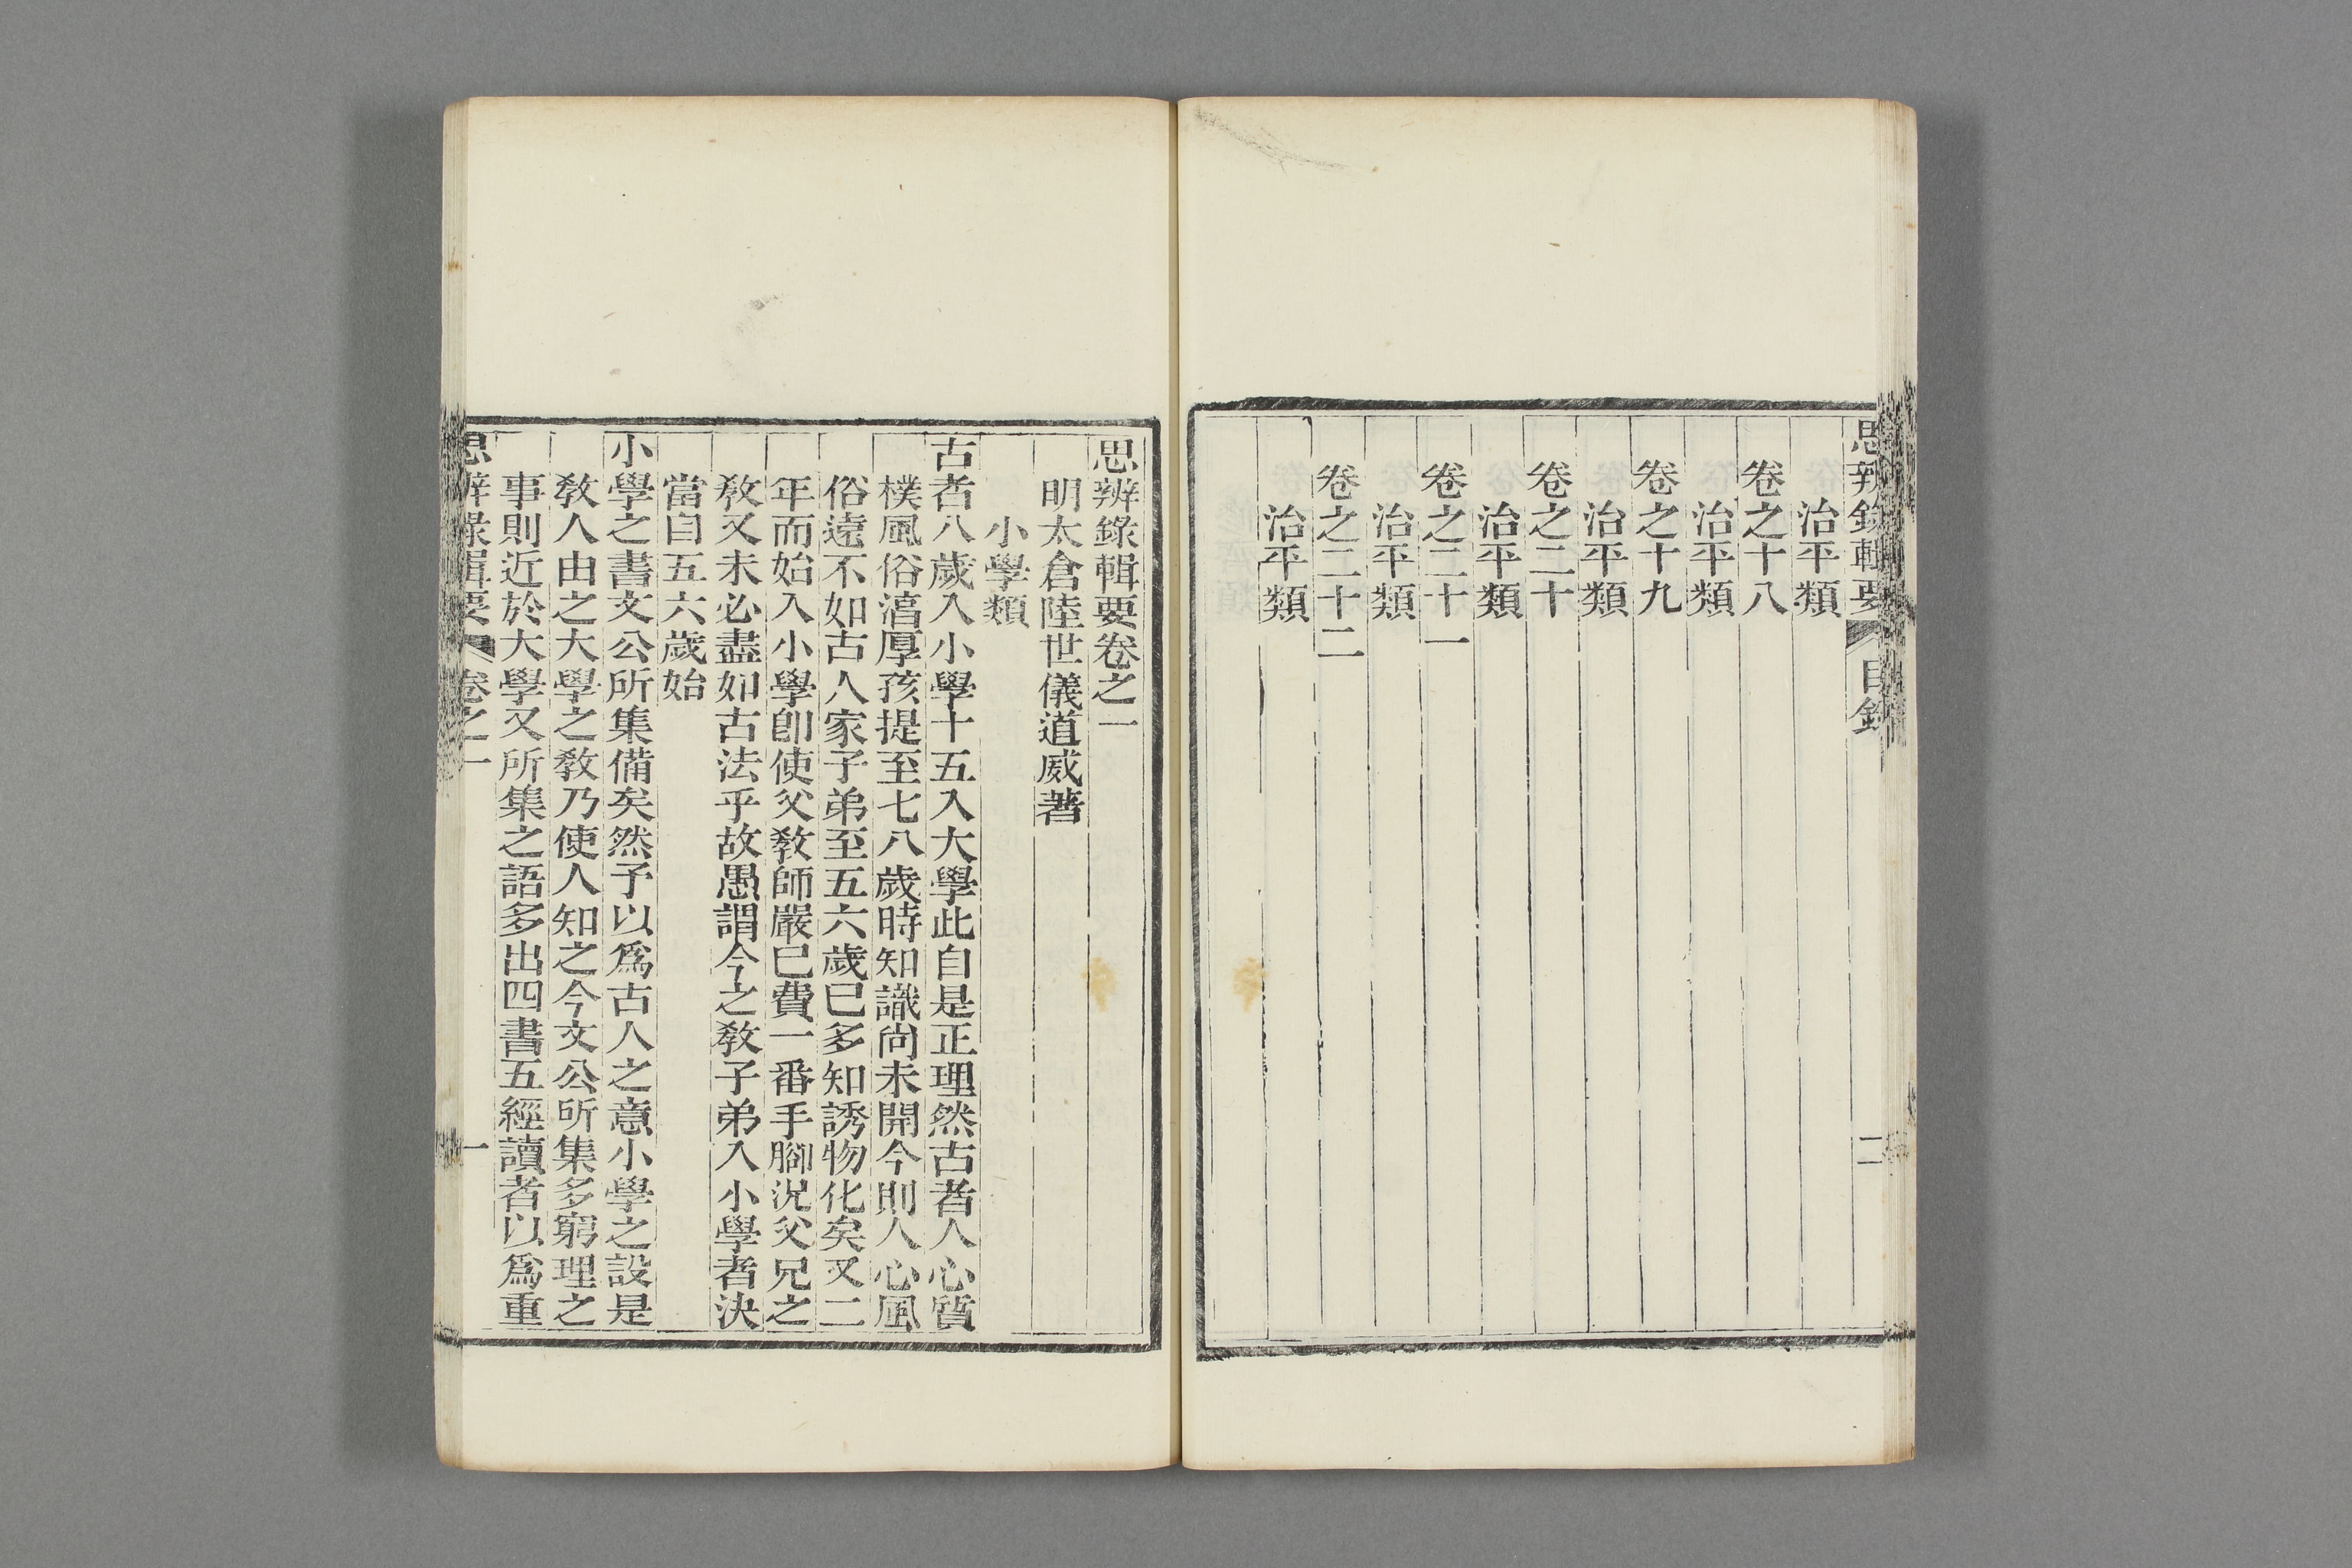 思辨錄輯要 目錄 二
治平類
卷之十八
治平類
卷之十九
治平類
卷之二十
治平類
卷之二十一
治平類
卷之二十二
治平類
思辨錄輯要卷之一
明太倉陸世儀道威著
小學類
古者八歲入小學十五入大學此自是正理然古者人心質
樸風俗湻厚孩提至七八歲時知識尙未開今則人心風
俗遠不如古人家子弟至五六歲已多知誘物化矣又二
年而始入小學卽使父敎師嚴已費一番手腳況父兄之
敎又未必盡如古法乎故愚謂今之敎子弟入小學者決
當自五六歲始
小學之書文公所集備矣然予以爲古人之意小學之設是
敎人由之大學之敎乃使人知之今文公所集多窮理之
事則近於大學又所集之語多出四書五經讀者以爲重
思辨錄輯要 卷之一 一